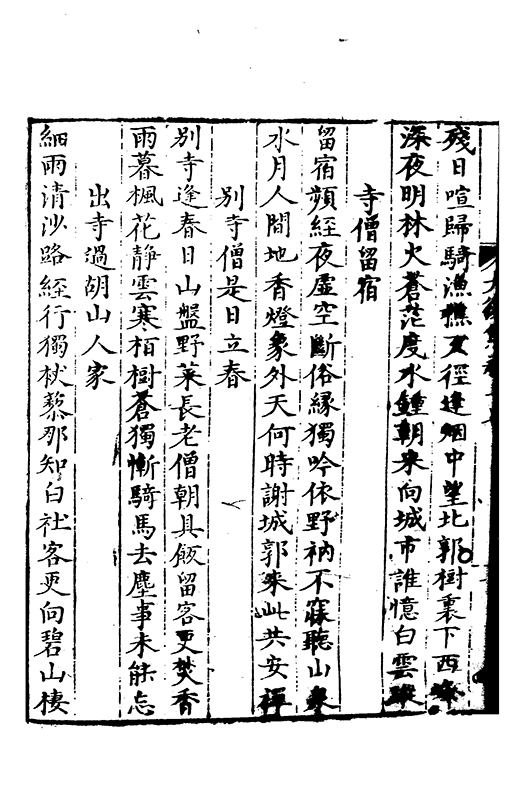 殘日喧歸騎漁樵叉徑逢烟中望北郭樹裏下西峰
深夜明林火蒼茫度水鍾朝来向城市誰憶白雲蹤
寺僧留宿
留宿頻經夜虚空斷俗縁獨吟依野衲不寐聽山泉
水月人間地香燈象外天何時謝城郭来此共安禪
別寺僧是日立春
別寺逢春日山盤野菜長老僧朝具飯留客更焚香
雨暮楓花静雲寒栢樹蒼獨慚騎馬去塵事未能忘
出寺過胡山人家
細雨清沙路經行獨杖藜那知白社客更向碧山棲